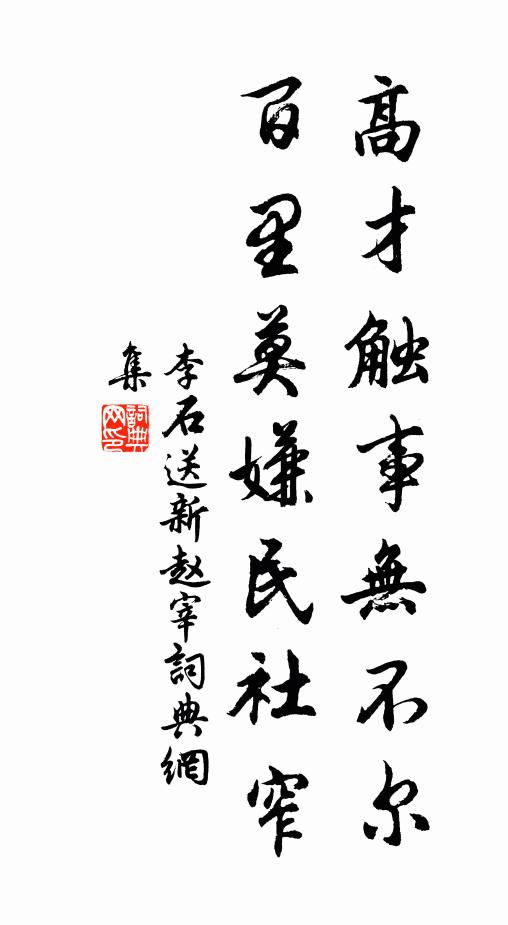 高才触事無不尔
百里莫嫌民社窄
李石送新赵宰詞典網
集
詞典
网印